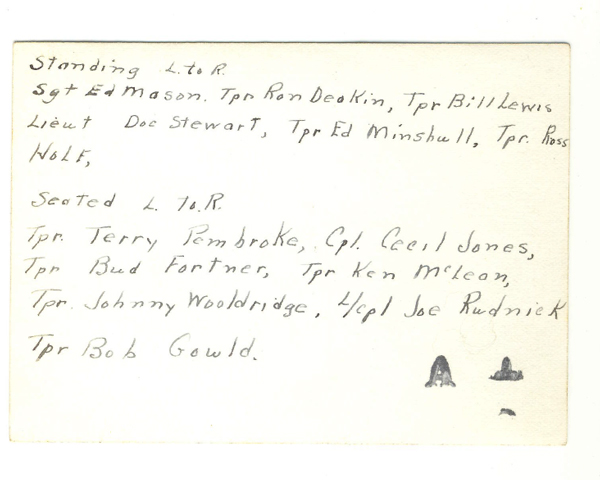 Standing L. to R.
Sgt Ed Mason. Tpr Ron Deakin, Tpr Bill Lewis
Lieut Doc Stewart, Tpr Ed Minshull, Tpr. Ross
Wolf,
Seated L. To. R.
Tpr. Terry Pembroke, Cpl. Cecil Jones,
Tpr Bud Fortner, Tpr Ken McLean,
Tpr. Johnny Wooldridge, L/cpl Joe Rudnick
Tpr Bob Gowld.
A